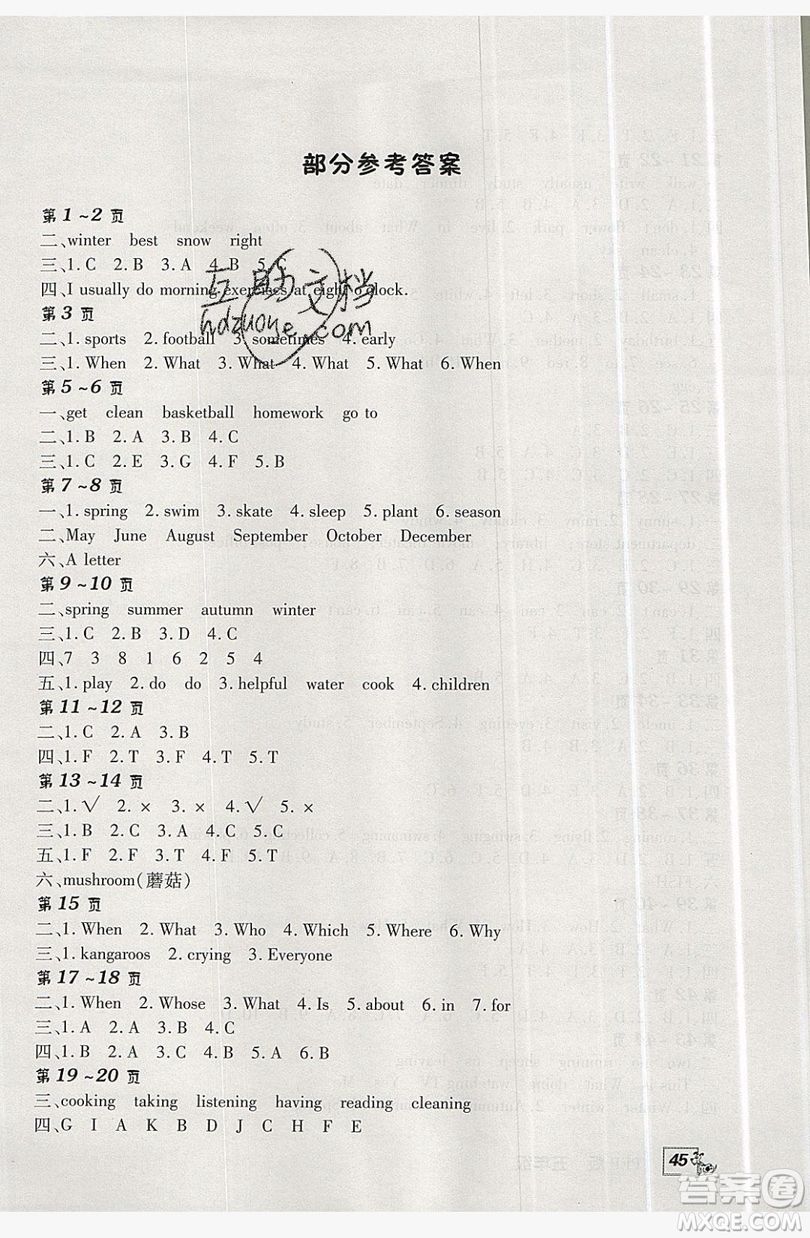 部分参考答案
第1~2页
二、winter best snow right
三、1.C 2.B 3.A 4.B 5.C
四、I usually do morning exercises at eight o'clock.
第3页
二、1.sports 2.football 3.sometimes 4.early
三、1.When 2.What 3.What 4.What 5.What 6.When
第5~6页
一、get clean basketball homework go to
二、1.B 2.A 3.B 4.C
三、1.C 2.E 3.G 4.F 5.B 6.A 7.D
第7~8页
一、1.spring 2.swim 3.skate 4.sleep 5.plant 6.season
二、May June August September October December
六、A letter
第9~10页
二、spring summer autumn winter
三、1.C 2.B 3.D 4.C 5.A
四、7 3 8 1 6 2 5 4
五、1.play 2.do do 3.helpful water cook 4.children
第11~12页
二、1.C 2.B 3.A 4.C 5.A
四、1.F 2.T 3.F 4.T 5.T
第13~14页
二、1.√ 2.× 3.× 4.√ 5.×
三、1.B 2.C 3.A 4.C 5.C
五、1.F 2.T 3.F 4.F 5.T
六、mushroom(蘑菇)
第15页
二、1.When 2.What 3.Who 4.Which 5.Where 6.Why
三、1.kangaroos 2.crying 3.Everyone
第17~18页
二、1.When 2.Whose 3.What 4.Is 5.about 6.in 7.for
三、1.A 2.A 3.B 4.C 5.A
四、1.B 2.C 3.A 4.B 5.C
第19~20页
三、cooking taking listening having reading cleaning
四、G I A K B D J C H F E
45
互助文档
hdzuoye.com
答案圈
MXQE.COM